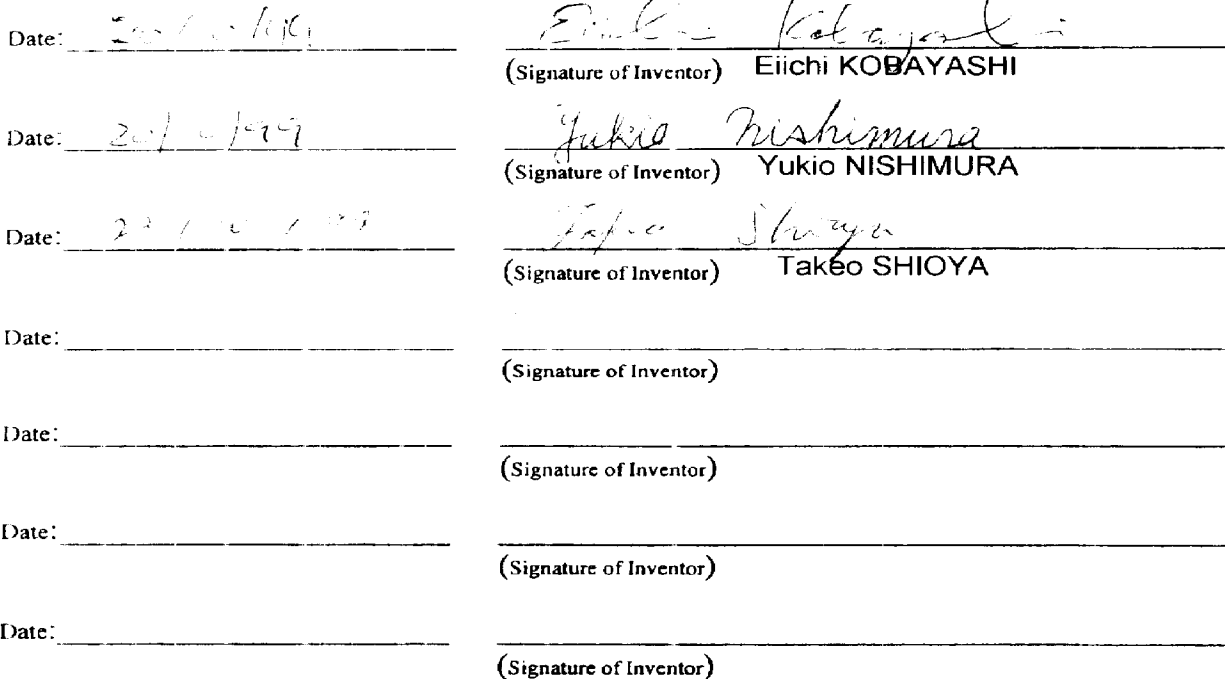 Date: Eiichi Kobayashi
(Signature of Inventor) Eiichi KOBAYASHI
Date: Yukio Nishimura
(Signature of Inventor) Yukio NISHIMURA
Date: Takeo Shioya
(Signature of Inventor) Takeo SHIOYA
Date:
(Signature of Inventor)
Date:
(Signature of Inventor)
Date:
(Signature of Inventor)
Date:
(Signature of Inventor)